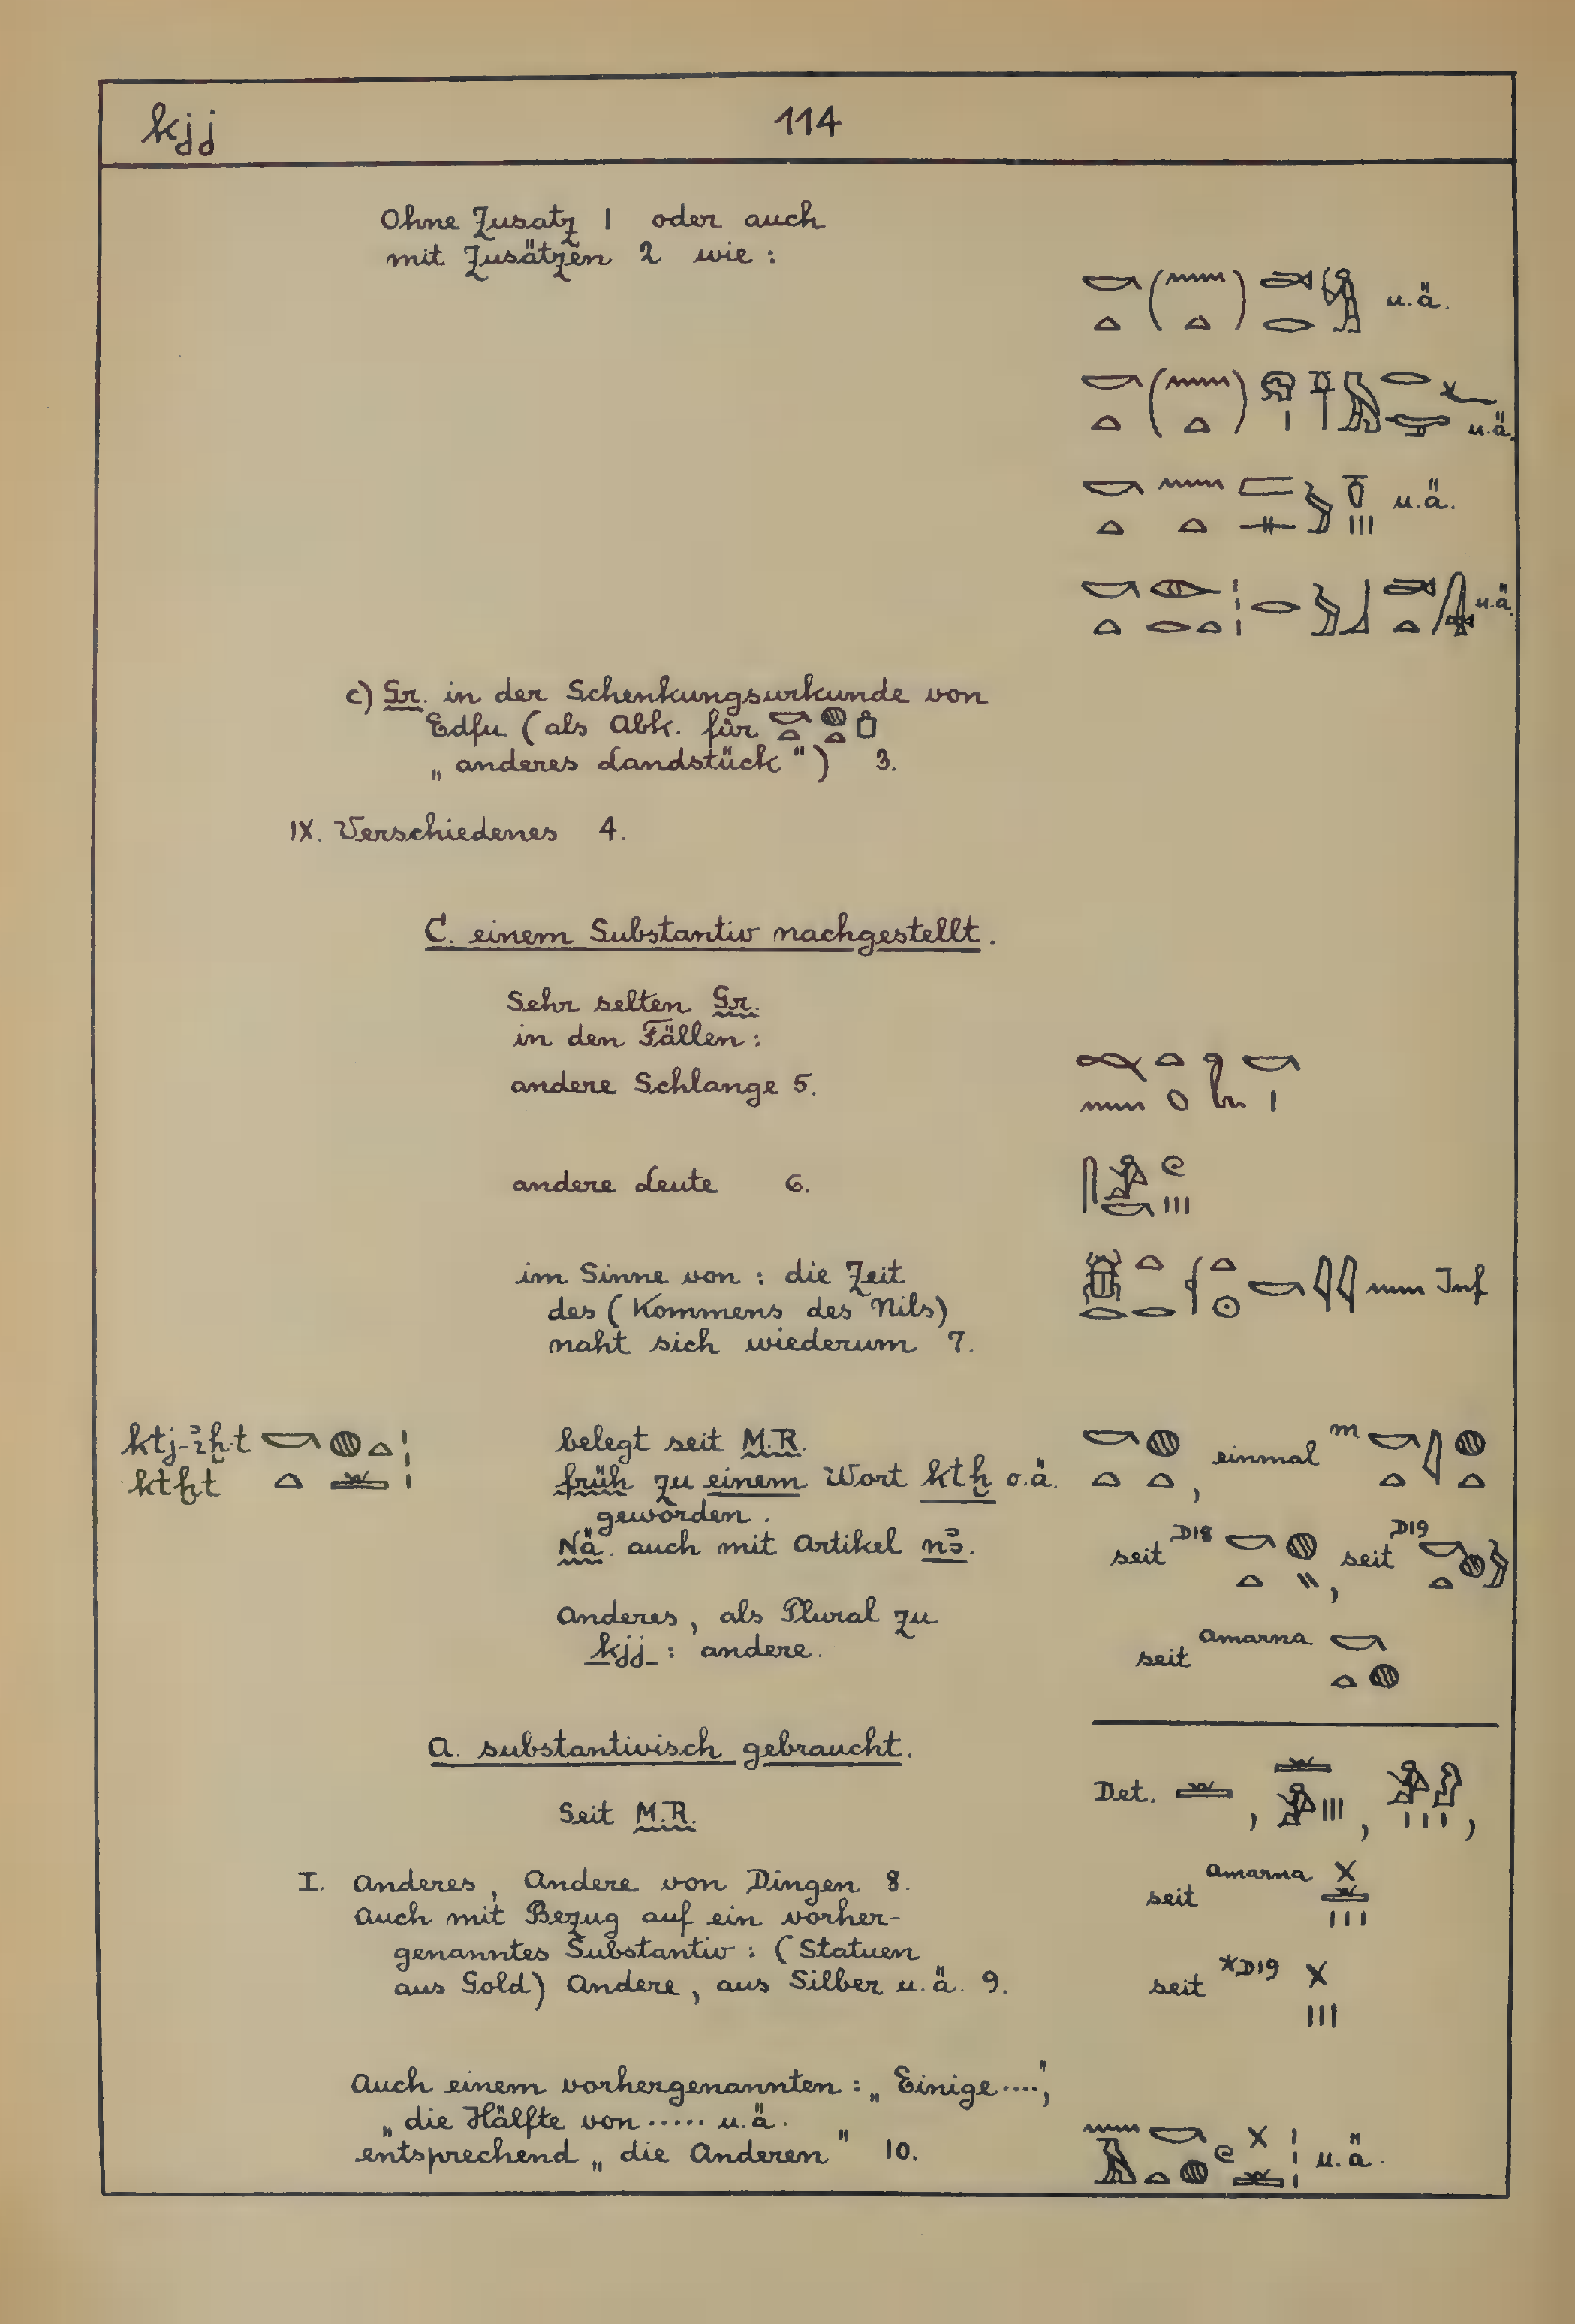 kjj
114
Ohne Zusatz 1 oder auch
mit Zusätzen 2 wie :
u.ä.
u.ä.
u.ä.
u.ä.
c) Gr. in der Schenkungsurkunde von
Edfu (als Abk. für
„anderes Landstück") 3.
IX. Verschiedenes 4.
C. einem Substantiv nachgestellt.
Sehr selten Gr.
in den Fällen :
andere Schlange 5.
andere Leute 6.
im Sinne von : die Zeit
des (Kommens des Nils)
naht sich wiederum 7.
Inf
ktj-ꞽḫt
ktḫt
belegt seit M.R.
früh zu einem Wort ktḫ o.ä.
geworden.
Nä. auch mit Artikel nꜣ.
, einmal m
seit D18 , seit D19
Anderes, als Plural zu
kjj : andere.
seit Amarna
A. substantivisch gebraucht.
Seit M.R.
Det. , , ,
I. Anderes, Andere von Dingen 8.
Auch mit Bezug auf ein vorher-
genanntes Substantiv : (Statuen
aus Gold) Andere, aus Silber u.ä. 9.
seit Amarna
seit *D19
Auch einem vorhergenannten : „Einige....",
„die Hälfte von ..... u.ä.
entsprechend „die Anderen" 10.
u.ä.